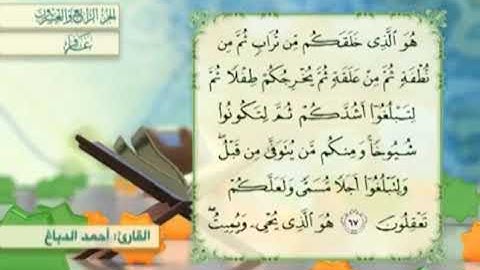 الجزء الرابع والعشرون
غافر
هُوَ ٱلَّذِى خَلَقَكُم مِّن تُرَابٍ ثُمَّ مِن
نُّطْفَةٍ ثُمَّ مِنْ عَلَقَةٍ ثُمَّ يُخْرِجُكُمْ طِفْلًا ثُمَّ
لِتَبْلُغُوٓا۟ أَشُدَّكُمْ ثُمَّ لِتَكُونُوا۟
شُيُوخًا ۚ وَمِنكُم مَّن يُتَوَفَّىٰ مِن قَبْلُ ۖ
وَلِتَبْلُغُوٓا۟ أَجَلًا مُّسَمًّى وَلَعَلَّكُمْ
تَعْقِلُونَ ٦٧ هُوَ ٱلَّذِى يُحْىِۦ وَيُمِيتُ ۖ
القارئ: أحمد الدباغ